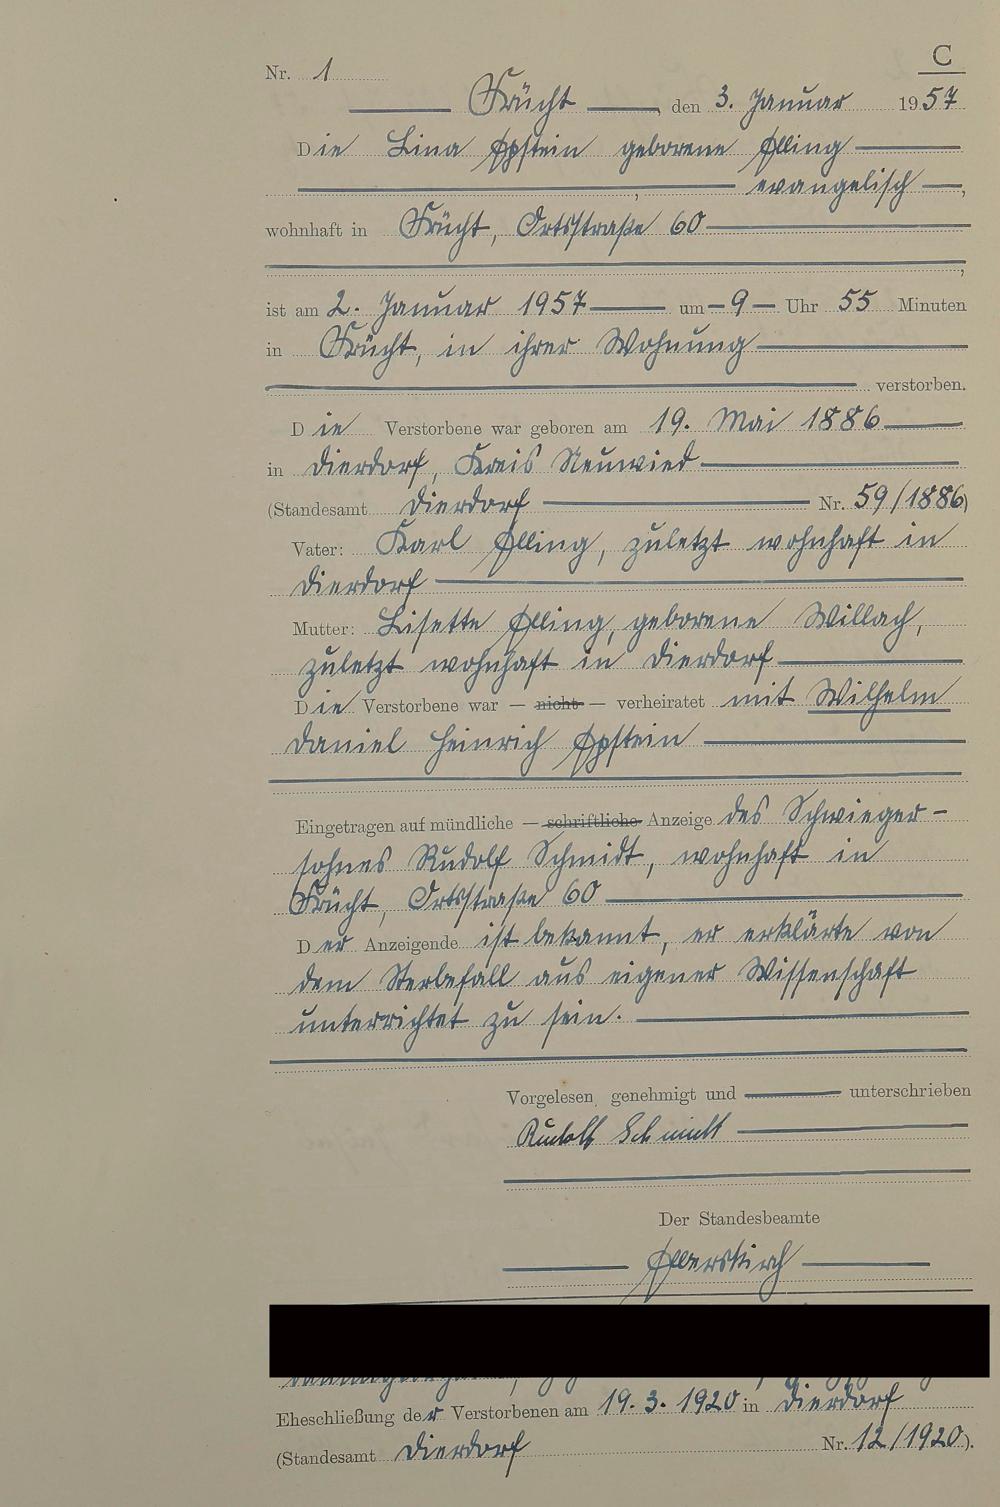 C
Nr. 1
Frücht, den 3. Januar 1957
Die Lina Eppstein geborene Elling
, evangelisch,
wohnhaft in Frücht, Ortsstraße 60
,
ist am 2. Januar 1957 um 9 Uhr 55 Minuten
in Frücht, in ihrer Wohnung
verstorben.
Die Verstorbene war geboren am 19. Mai 1886
in Dierdorf, Kreis Neuwied
(Standesamt Dierdorf Nr. 59/1886)
Vater: Karl Elling, zuletzt wohnhaft in
Dierdorf
Mutter: Lisette Elling, geborene Willach,
zuletzt wohnhaft in Dierdorf
Die Verstorbene war — nicht — verheiratet mit Wilhelm
Daniel Heinrich Eppstein
Eingetragen auf mündliche — schriftliche Anzeige des Schwieger-
sohnes Rudolf Schmidt, wohnhaft in
Frücht, Ortsstraße 60
Der Anzeigende ist bekannt, er erklärte von
dem Sterbefall aus eigener Wissenschaft
unterrichtet zu sein.
Vorgelesen, genehmigt und unterschrieben
Rudolf Schmidt
Der Standesbeamte
Eheschließung der Verstorbenen am 19. 3. 1920 in Dierdorf
(Standesamt Dierdorf Nr. 12/1920).